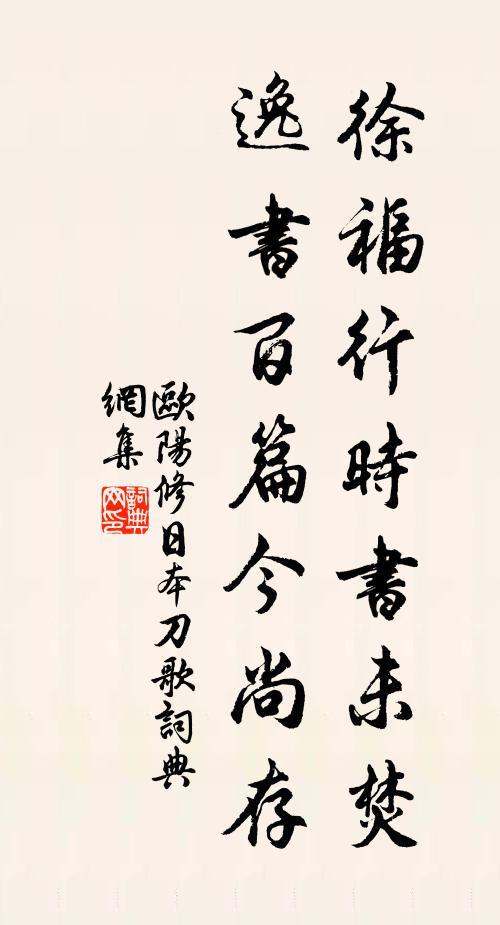 徐福行時書未焚
逸書百篇今尚存
歐陽修日本刀歌詞典
網集
詞典网印